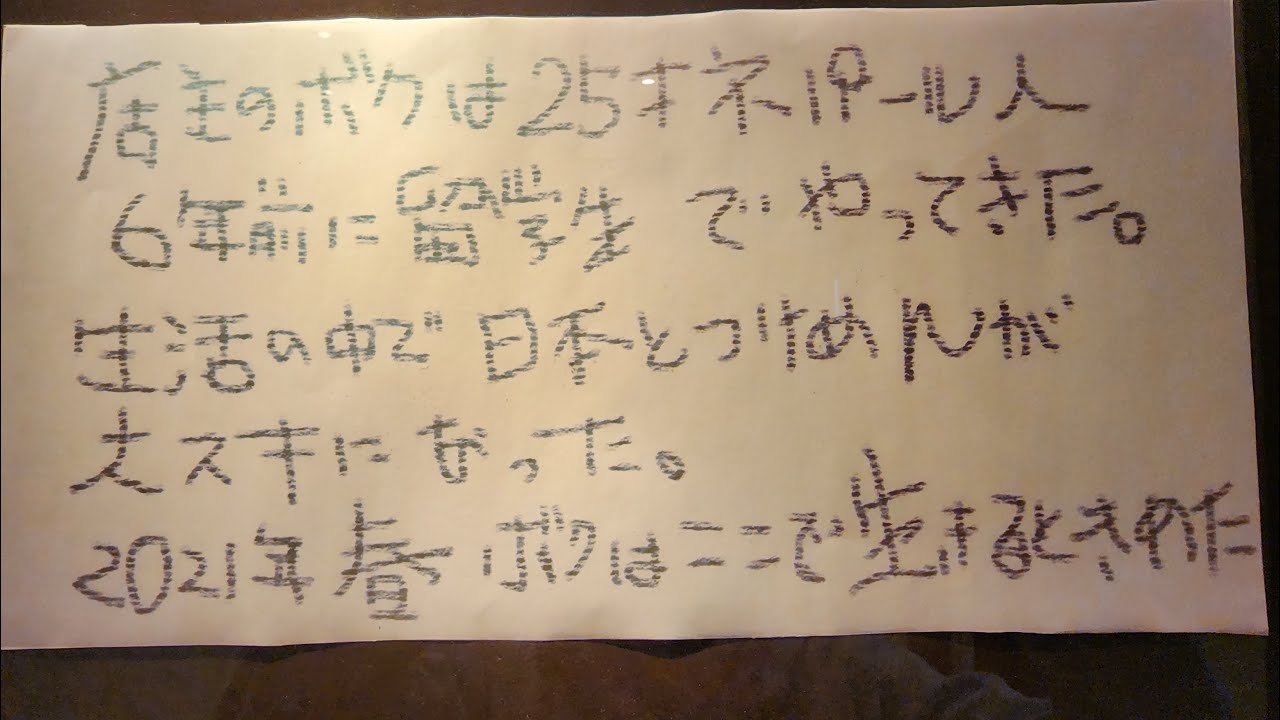 店主のボクは25才ネパール人
6年前に留学生でやってきた。
生活の中で日本とつけめんが
大スキになった。
2021年春ボクはここで生きるときめた